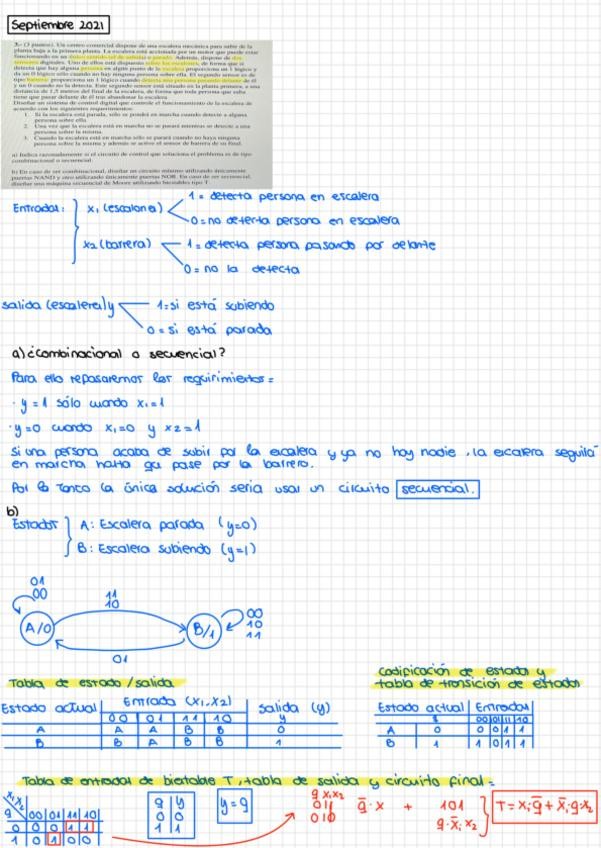 Septiembre 2021
3.- (3 puntos). Un centro comercial dispone de una escalera mecánica para subir de la
planta baja a la primera planta. La escalera está accionada por un motor que puede estar
funcionando en un único sentido (el de subida) o parado. Además, dispone de dos
sensores digitales. Uno de ellos está dispuesto sobre los escalones, de forma que si
detecta que hay alguna persona en algún punto de la escalera proporciona un 1 lógico y
da un 0 lógico sólo cuando no hay ninguna persona sobre ella. El segundo sensor es de
tipo barrera: proporciona un 1 lógico cuando detecta una persona pasando delante de él
y un 0 cuando no la detecta. Este segundo sensor está situado en la planta primera, a una
distancia de 1,5 metros del final de la escalera, de forma que toda persona que suba
tiene que pasar delante de él tras abandonar la escalera.
Diseñar un sistema de control digital que controle el funcionamiento de la escalera de
acuerdo con los siguientes requerimientos:
1. Si la escalera está parada, sólo se pondrá en marcha cuando detecte a alguna
persona sobre ella.
2. Una vez que la escalera está en marcha no se parará mientras se detecte a una
persona sobre la misma.
3. Cuando la escalera esté en marcha sólo se parará cuando no haya ninguna
persona sobre la misma y además se active el sensor de barrera de su final.
a) Indica razonadamente si el circuito de control que soluciona el problema es de tipo
combinacional o secuencial.
b) En caso de ser combinacional, diseñar un circuito mínimo utilizando únicamente
puertas NAND y otro utilizando únicamente puertas NOR. En caso de ser secuencial,
diseñar una máquina secuencial de Moore utilizando biestables tipo T.
Entradas: x1 (escalones) 1= detecta persona en escalera
0=no detecta persona en escalera
x2 (barrera) 1=detecta persona pasando por delante
0= no la detecta
salida (escalera) y 1=si está subiendo
0=si está parada
a) ¿combinacional o secuencial?
Para ello repasaremos los requirimientos=
· y=1 sólo cuando x1=1
· y=0 cuando x1=0 y x2=1
Si una persona acaba de subir por la escalera y ya no hay nadie, la escalera seguirá
en marcha hasta que pase por la barrera.
Por lo tanto la única solución seria usar un circuito secuencial.
b)
Estados A: Escalera parada (y=0)
B: Escalera subiendo (y=1)
01
00
11
10
A/0
B/1
00
10
11
01
Tabla de estado/salida
Codificación de estados y
tabla de transición de estados
Estado actual Entrada (x1,x2) Salida (y)
00 01 11 10 y
A A A B B 0
B B A B B 1
Estado actual Entradas
00 01 11 10
A 0 0 0 1 1
B 1 1 0 1 1
Tabla de entradas de biestable T, tabla de salida y circuito final=
x1x2
q 00 01 11 10
0 0 0 1 1
1 0 1 0 0
q y
0 0
1 1
y=q
q x1x2
011
010
q̄·x + 101
q·x̄1·x2
T=x1·q̄+x̄1·q·x2